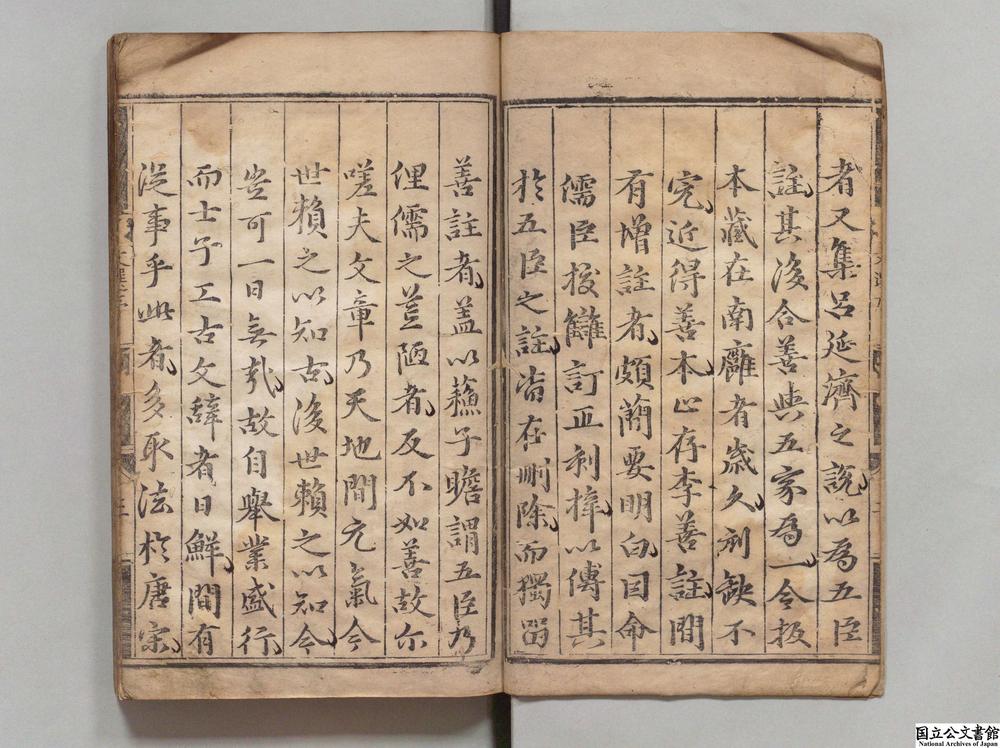 者又集呂延濟之説以為五臣
註其後合善與五家為一今板
本藏在南廱者歲久刓缺不
完近得善本止存李善註間
有增註者頗簡要明白因命
儒臣挍讎訂正刹梓以傳其
於五臣之註皆在刪除而獨留
善註者盖以蘓子瞻謂五臣乃
俚儒之荒陋者反不如善故尒
嗟夫文章乃天地間元氣今
世賴之以知古後世賴之以知今
豈可一日無㦲故自舉業盛行
而士子工古文辭者日鮮間有
從事乎此者多取法於唐宋
国立公文書館
National Archives of Japan